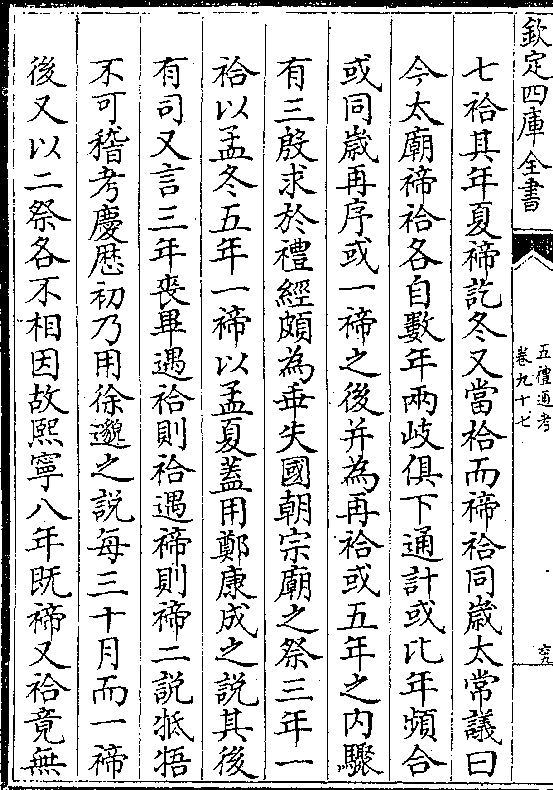 欽定四庫全書
五禮通考
卷九十七
七祫其年夏禘訖冬又當祫而禘祫同嵗太常議曰
今太廟禘祫各自數年兩岐俱下通計或比年頻合
或同嵗再序或一禘之後并為再祫或五年之内驟
有三殷求於禮經頗為乖失國朝宗廟之祭三年一
祫以孟冬五年一禘以孟夏蓋用鄭康成之説其後
有司又言三年喪畢遇祫則祫遇禘則禘二説牴牾
不可稽考慶厯初乃用徐邈之説每三十月而一禘
後又以二祭各不相因故熙寧八年既禘又祫竟無